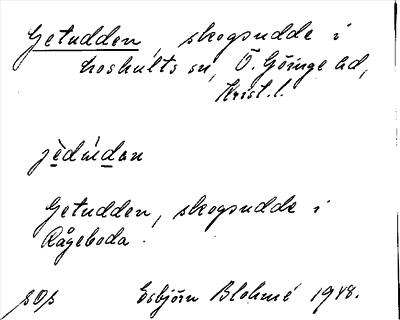 Getudden, skogsudde i
Loshults sn, Ö. Göinge hd,
Krist. l.
jèdúdən
Getudden, skogsudde i
Rågeboda.
Esbjörn Blohmé 1948.